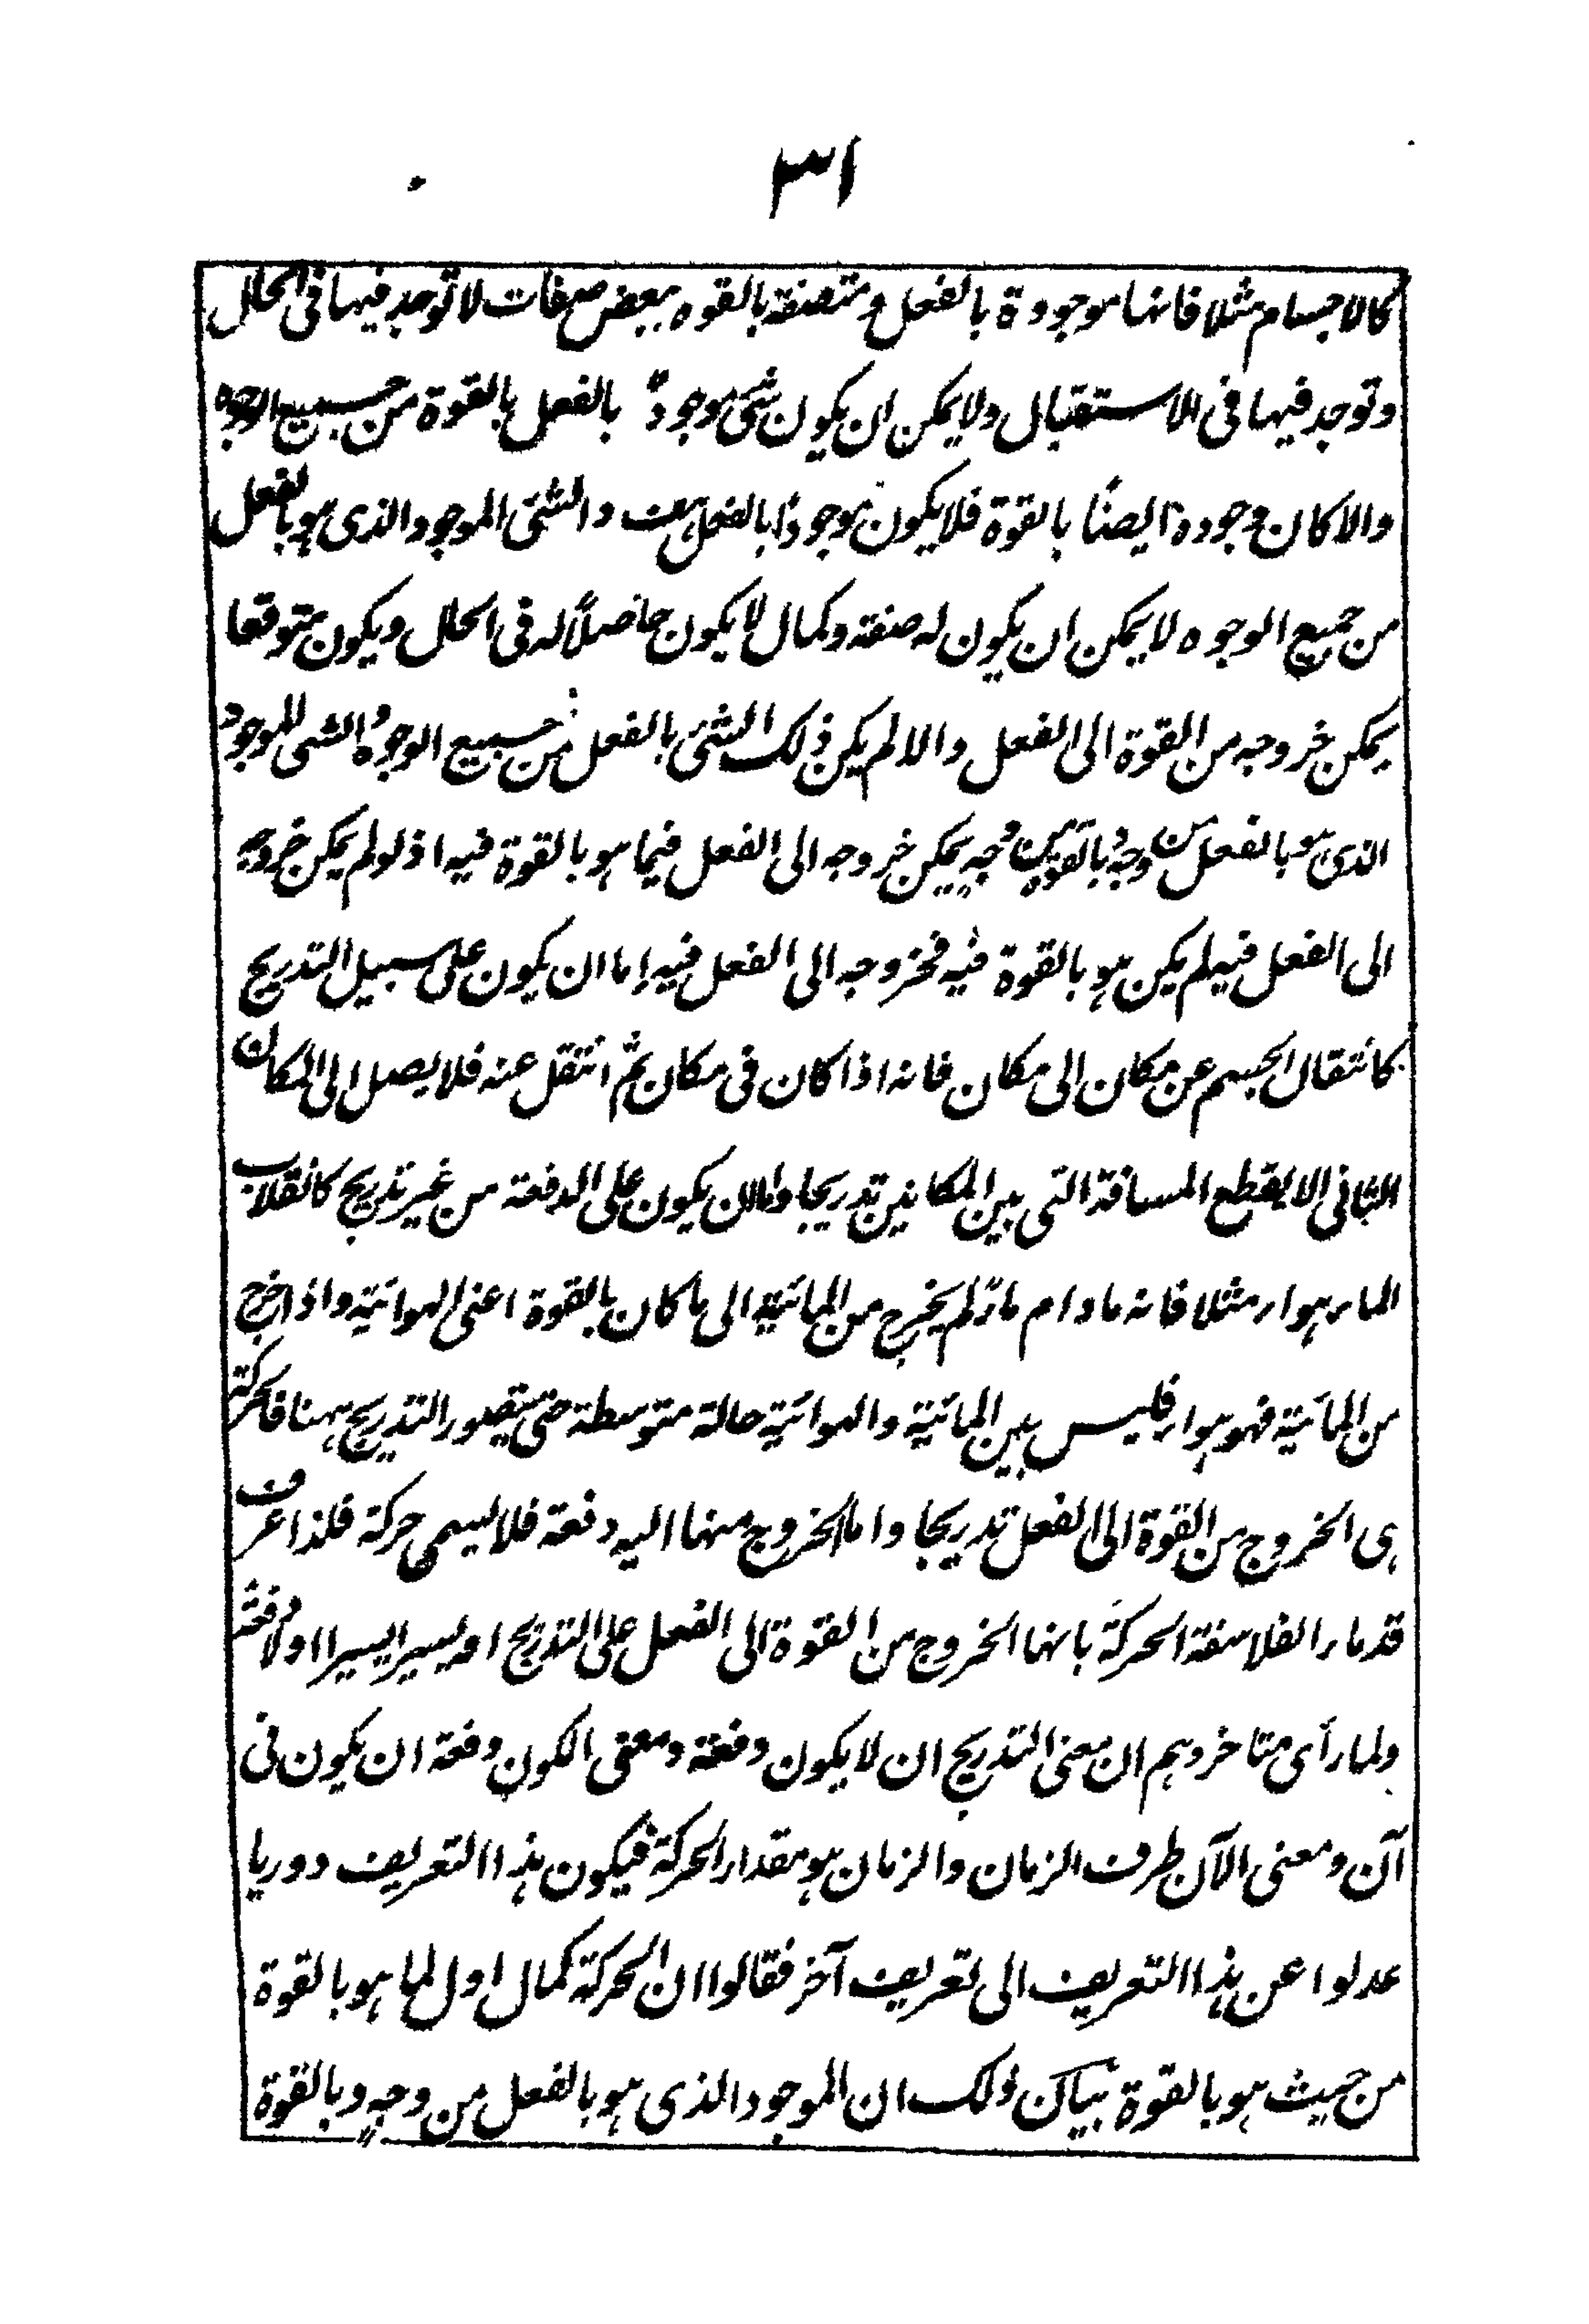 ٣١
كالاجسام مثلا فانها موجودة بالفعل ومتصفة بالقوه ببعض صفات لا توجد فيها فى الحال
وتوجد فيها فى الاستقبال ولا يمكن ان يكون شئ موجودٌ بالفعل بالقوة من جميع الوجوه
والا كان وجوده ايضًا بالقوة فلا يكون موجودًا بالفعل هف والشئ الموجود الذى هو بالفعل
من جميع الوجوه لا يمكن ان يكون له صفة وكمال لا يكون حاصلًا له فى الحال ويكون متوقعا
يمكن خروجه من القوة الى الفعل والا لم يكن ذلك الشئ بالفعل من جميع الوجوه والشئ الموجود
الذى هو بالفعل من وجه وبالقوة من وجهٍ يمكن خروجه الى الفعل فيما هو بالقوة فيه اذ لو لم يمكن خروجه
الى الفعل فيه لم يكن هو بالقوة فيه فخروجه الى الفعل فيه اما ان يكون على سبيل التدريج
كانتقال الجسم عن مكان الى مكان فانه اذا كان فى مكان ثم انتقل عنه فلا يصل الى المكان
الثانى الا يقطع المسافة التى بين المكانين تدريجا واما ان يكون على الدفعة من غير تدريج كانقلاب
الماء هواء مثلا فانه مادام ماءً لم يخرج من المائية الى ما كان بالقوة اعنى الهوائية واذا خرج
من المائية فهو هواء فليس بين المائية والهوائية حالة متوسطة حتى يتصور التدريج ههنا فالحركة
هى الخروج من القوة الى الفعل تدريجا واما الخروج منها اليه دفعة فلا يسمى حركة فلذا عرف
قدماء الفلاسفة الحركة بانها الخروج من القوة الى الفعل على التدريج او يسيرا يسيرا او لا دفعة
ولما رأى متاخروهم ان معنى التدريج ان لا يكون دفعة ومعنى الكون دفعة ان يكون فى
آن ومعنى الآن طرف الزمان والزمان هو مقدار الحركة فيكون هذا التعريف دوريا
عدلوا عن هذا التعريف الى تعريف آخر فقالوا ان الحركة كمال اول لما هو بالقوة
من حيث هو بالقوة بيان ذلك ان الموجود الذى هو بالفعل من وجهٍ وبالقوة